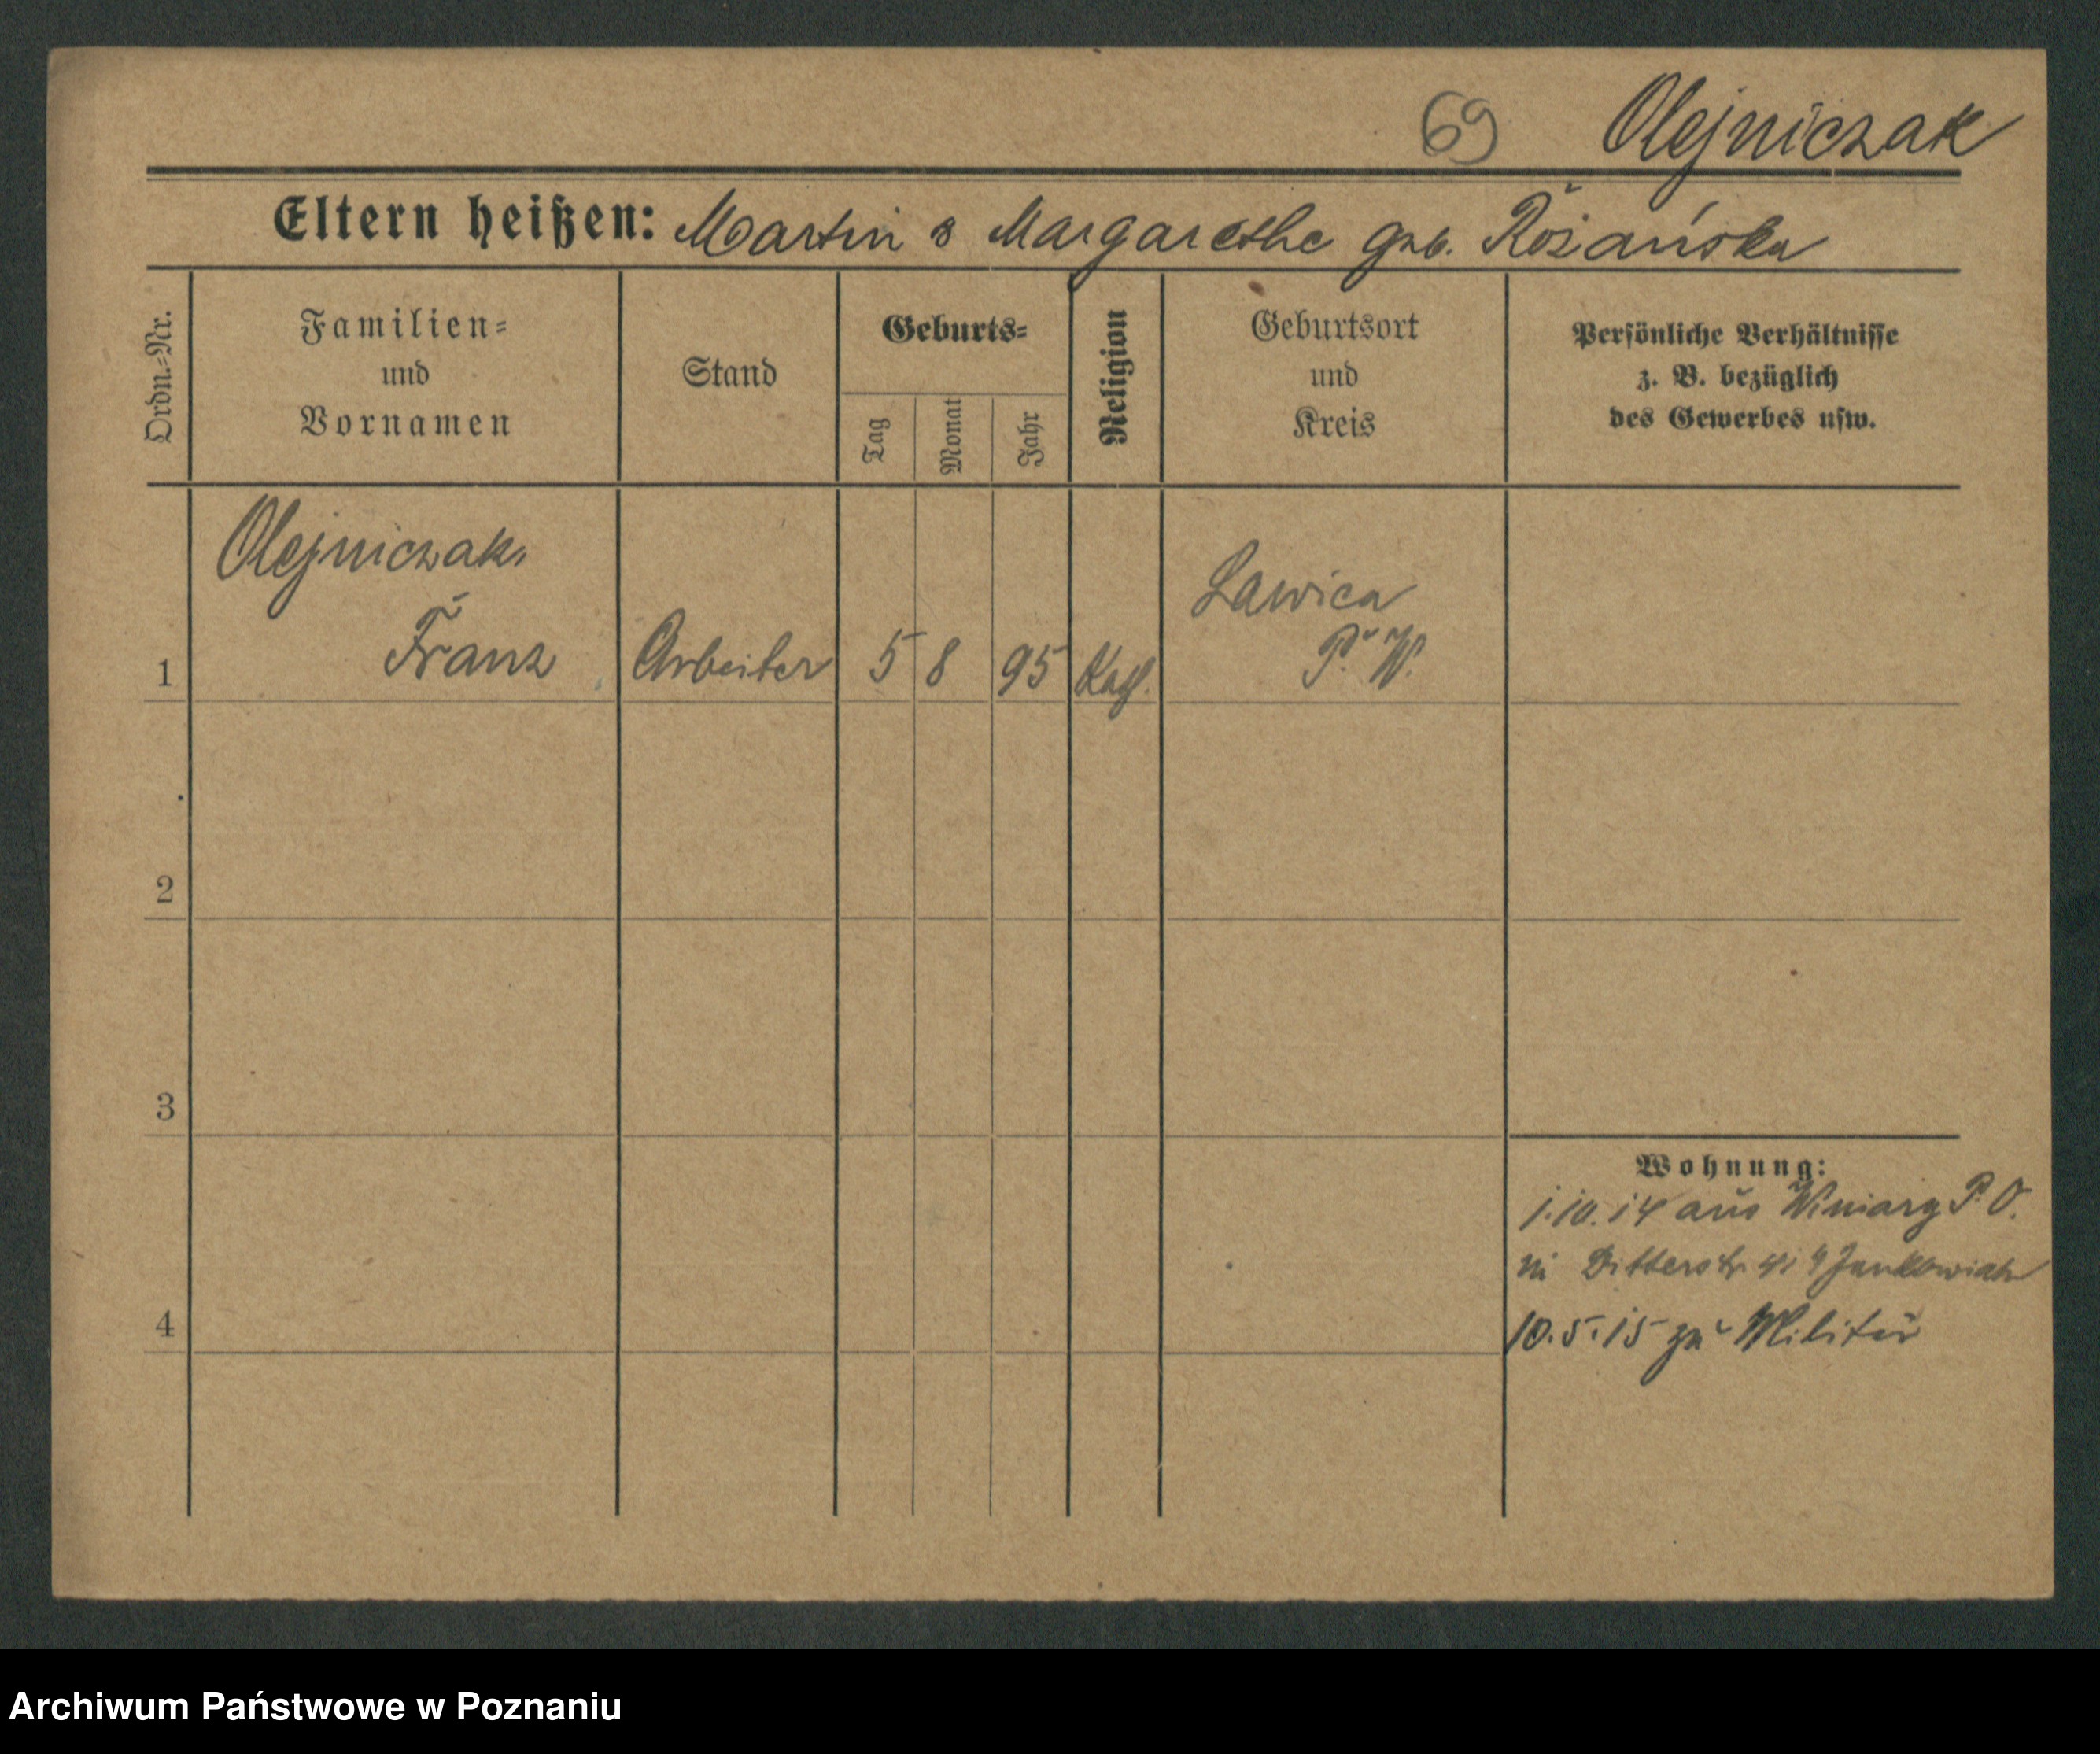 69 Olejniczak
Eltern heißen: Martin & Margarethe geb. Rożańska
Ordn.-Nr.
Familien-
und
Vornamen
Stand
Geburts-
Tag
Monat
Jahr
Religion
Geburtsort
und
Kreis
Persönliche Verhältnisse
z. B. bezüglich
des Gewerbes usw.
Olejniczak
1 Franz Arbeiter 5 8 95 Kath.
Lawica
P. W.
2
3
4
Wohnung:
1.10.14 aus Winiary P. O.
in Ditterstr 41 Jankowiak
10.5.15 zu Militär
Archiwum Państwowe w Poznaniu